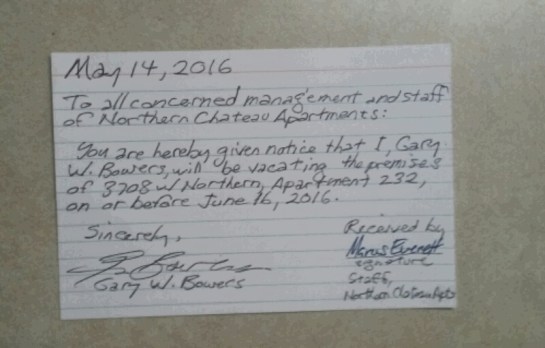 May 14, 2016
To all concerned management and staff
of Northern Chateau Apartments:
You are hereby given notice that I, Gary
W. Bowers, will be vacating the premises
of 3708 W Northern, Apartment 232,
on or before June 16, 2016.
Sincerely,
Gary W. Bowers
Received by
Marcus Everett
signature
Staff,
Northern Chateau Apts